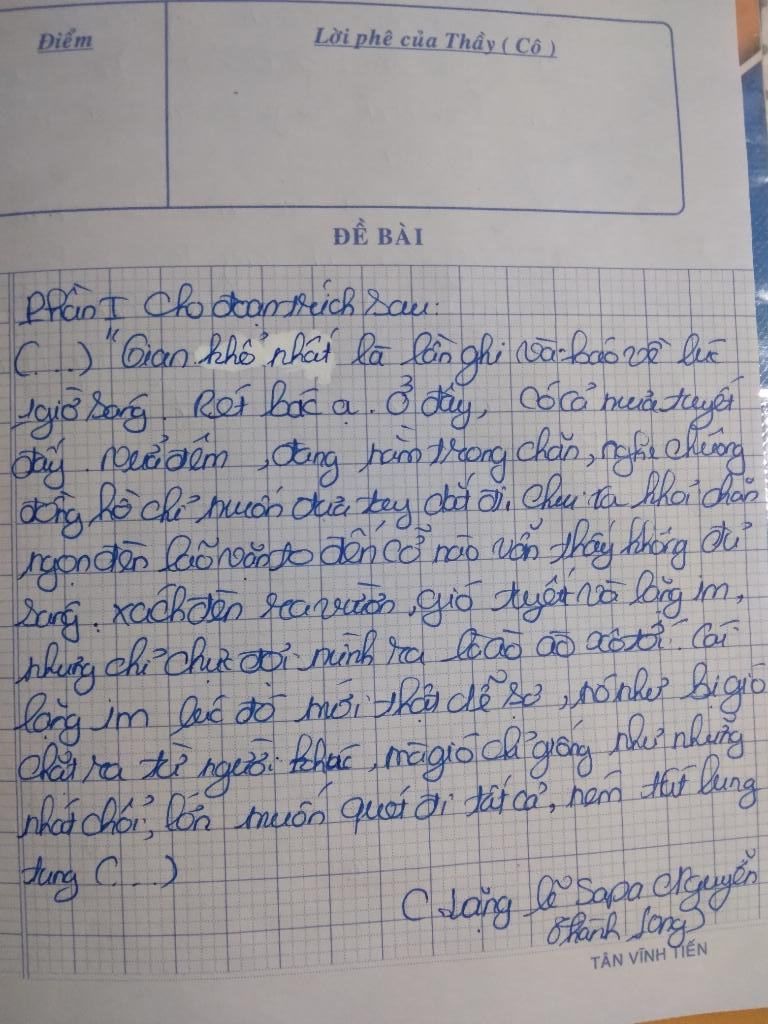 Điểm
Lời phê của Thầy ( Cô )
ĐỀ BÀI
Phần I Cho đoạn trích sau:
(...) "Gian khổ nhất là lần ghi và báo về lúc
1giờ sáng. Rét bác ạ. Ở đây, có cả mưa tuyết
đấy. Nửa đêm, đang nằm trong chăn, nghe chuông
đồng hồ chỉ muốn đưa tay tắt đi. Chui ra khỏi chăn
ngọn đèn bão vặn to đến cỡ nào vẫn thấy không đủ
sáng. xách đèn ra vườn, gió tuyết và lặng im,
nhưng chỉ chực đợi mình ra là ào ào xô tới. Cái
lặng im lúc đó mới thật dễ sợ, nó như bị gió
chặt ra từ người khác, mà gió chỉ giống như những
nhát chổi, lớn muốn quét đi tất cả, ném vứt lung
tung (...)
( Lặng lẽ Sapa Nguyễn
Thành Long)
TÂN VĨNH TIẾN